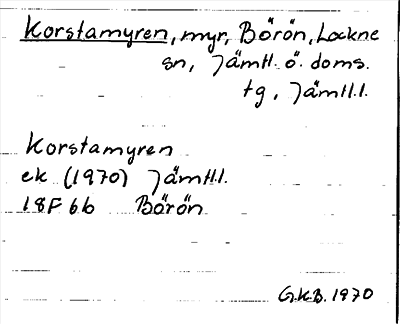 Korstamyren, myr, Börön, Lockne
sn, Jämtl. ö. doms.
tg, Jämtl.l.
Korstamyren
ek (1970) Jämtl.l.
18F 6b Börön
G.K.B. 1970